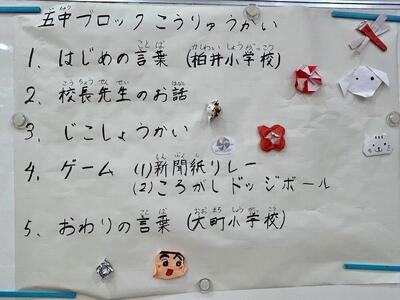 五中ブロックこうりゅうかい
1. はじめの言葉 (柏井小学校)
2. 校長先生のお話
3. じこしょうかい
4. ゲーム (1)新聞紙リレー
(2)ころがしドッジボール
5. おわりの言葉 (大町小学校)